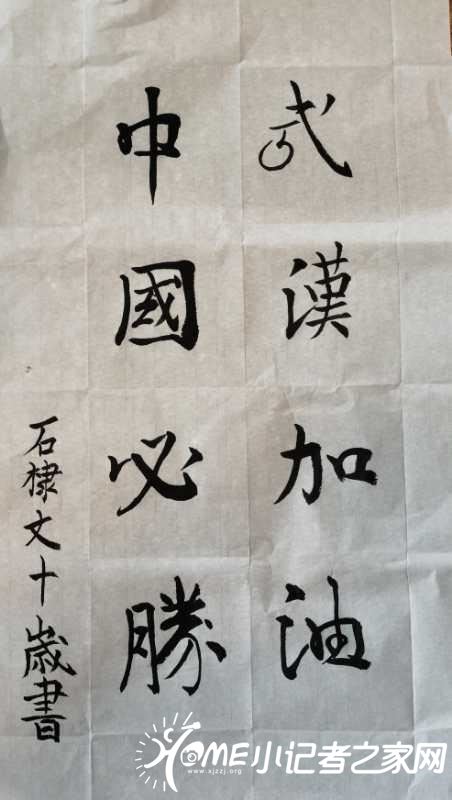 武漢加油
中國必勝
石棣文十歲書
HOME小记者之家网
www.xjzzj.org